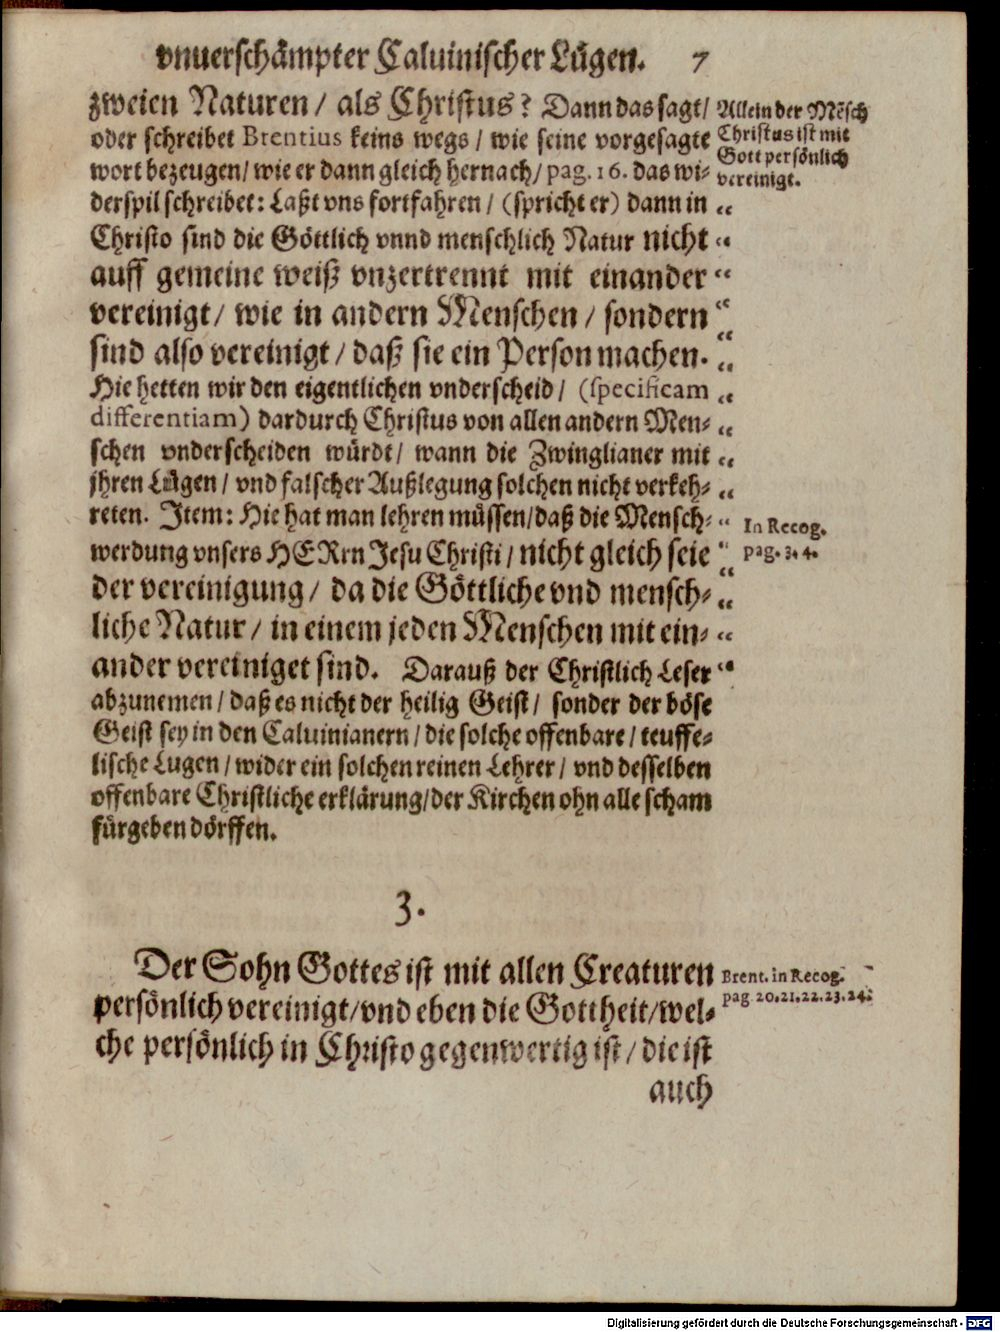 vnuerschämpter Caluinischer Lügen. 7
zweien Naturen / als Christus? Dann das sagt /
oder schreibet Brentius keins wegs / wie seine vorgesagte
wort bezeugen / wie er dann gleich hernach / pag. 16. das wi-
derspil schreibet: Laßt vns fortfahren / (spricht er) dann in
Christo sind die Göttlich vnnd menschlich Natur nicht
auff gemeine weiß vnzertrennt mit einander
vereinigt / wie in andern Menschen / sondern
sind also vereinigt / daß sie ein Person machen.
Hie hetten wir den eigentlichen vnderscheid / (specificam
differentiam) dardurch Christus von allen andern Men-
schen vnderscheiden würdt / wann die Zwinglianer mit
jhren Lügen / vnd falscher Außlegung solchen nicht verkeh-
reten. Item: Hie hat man lehren müssen / daß die Mensch-
werdung vnsers HERrn Jesu Christi / nicht gleich seie
der vereinigung / da die Göttliche vnd mensch-
liche Natur / in einem jeden Menschen mit ein-
ander vereiniget sind. Darauß der Christlich Leser
abzunemen / daß es nicht der heilig Geist / sonder der böse
Geist sey in den Caluinianern / die solche offenbare / teuffe-
lische Lugen / wider ein solchen reinen Lehrer / vnd desselben
offenbare Christliche erklärung / der Kirchen ohn alle scham
fürgeben dörffen.
Allein der Mẽsch
Christus ist mit
Gott persönlich
vereinigt.
In Recog.
pag. 3. 4.
3.
Der Sohn Gottes ist mit allen Creaturen
persönlich vereinigt / vnd eben die Gottheit / wel-
che persönlich in Christo gegenwertig ist / die ist
auch
Brent. in Recog.
pag 20. 21. 22. 23. 24.
Digitalisierung gefördert durch die Deutsche Forschungsgemeinschaft - DFG